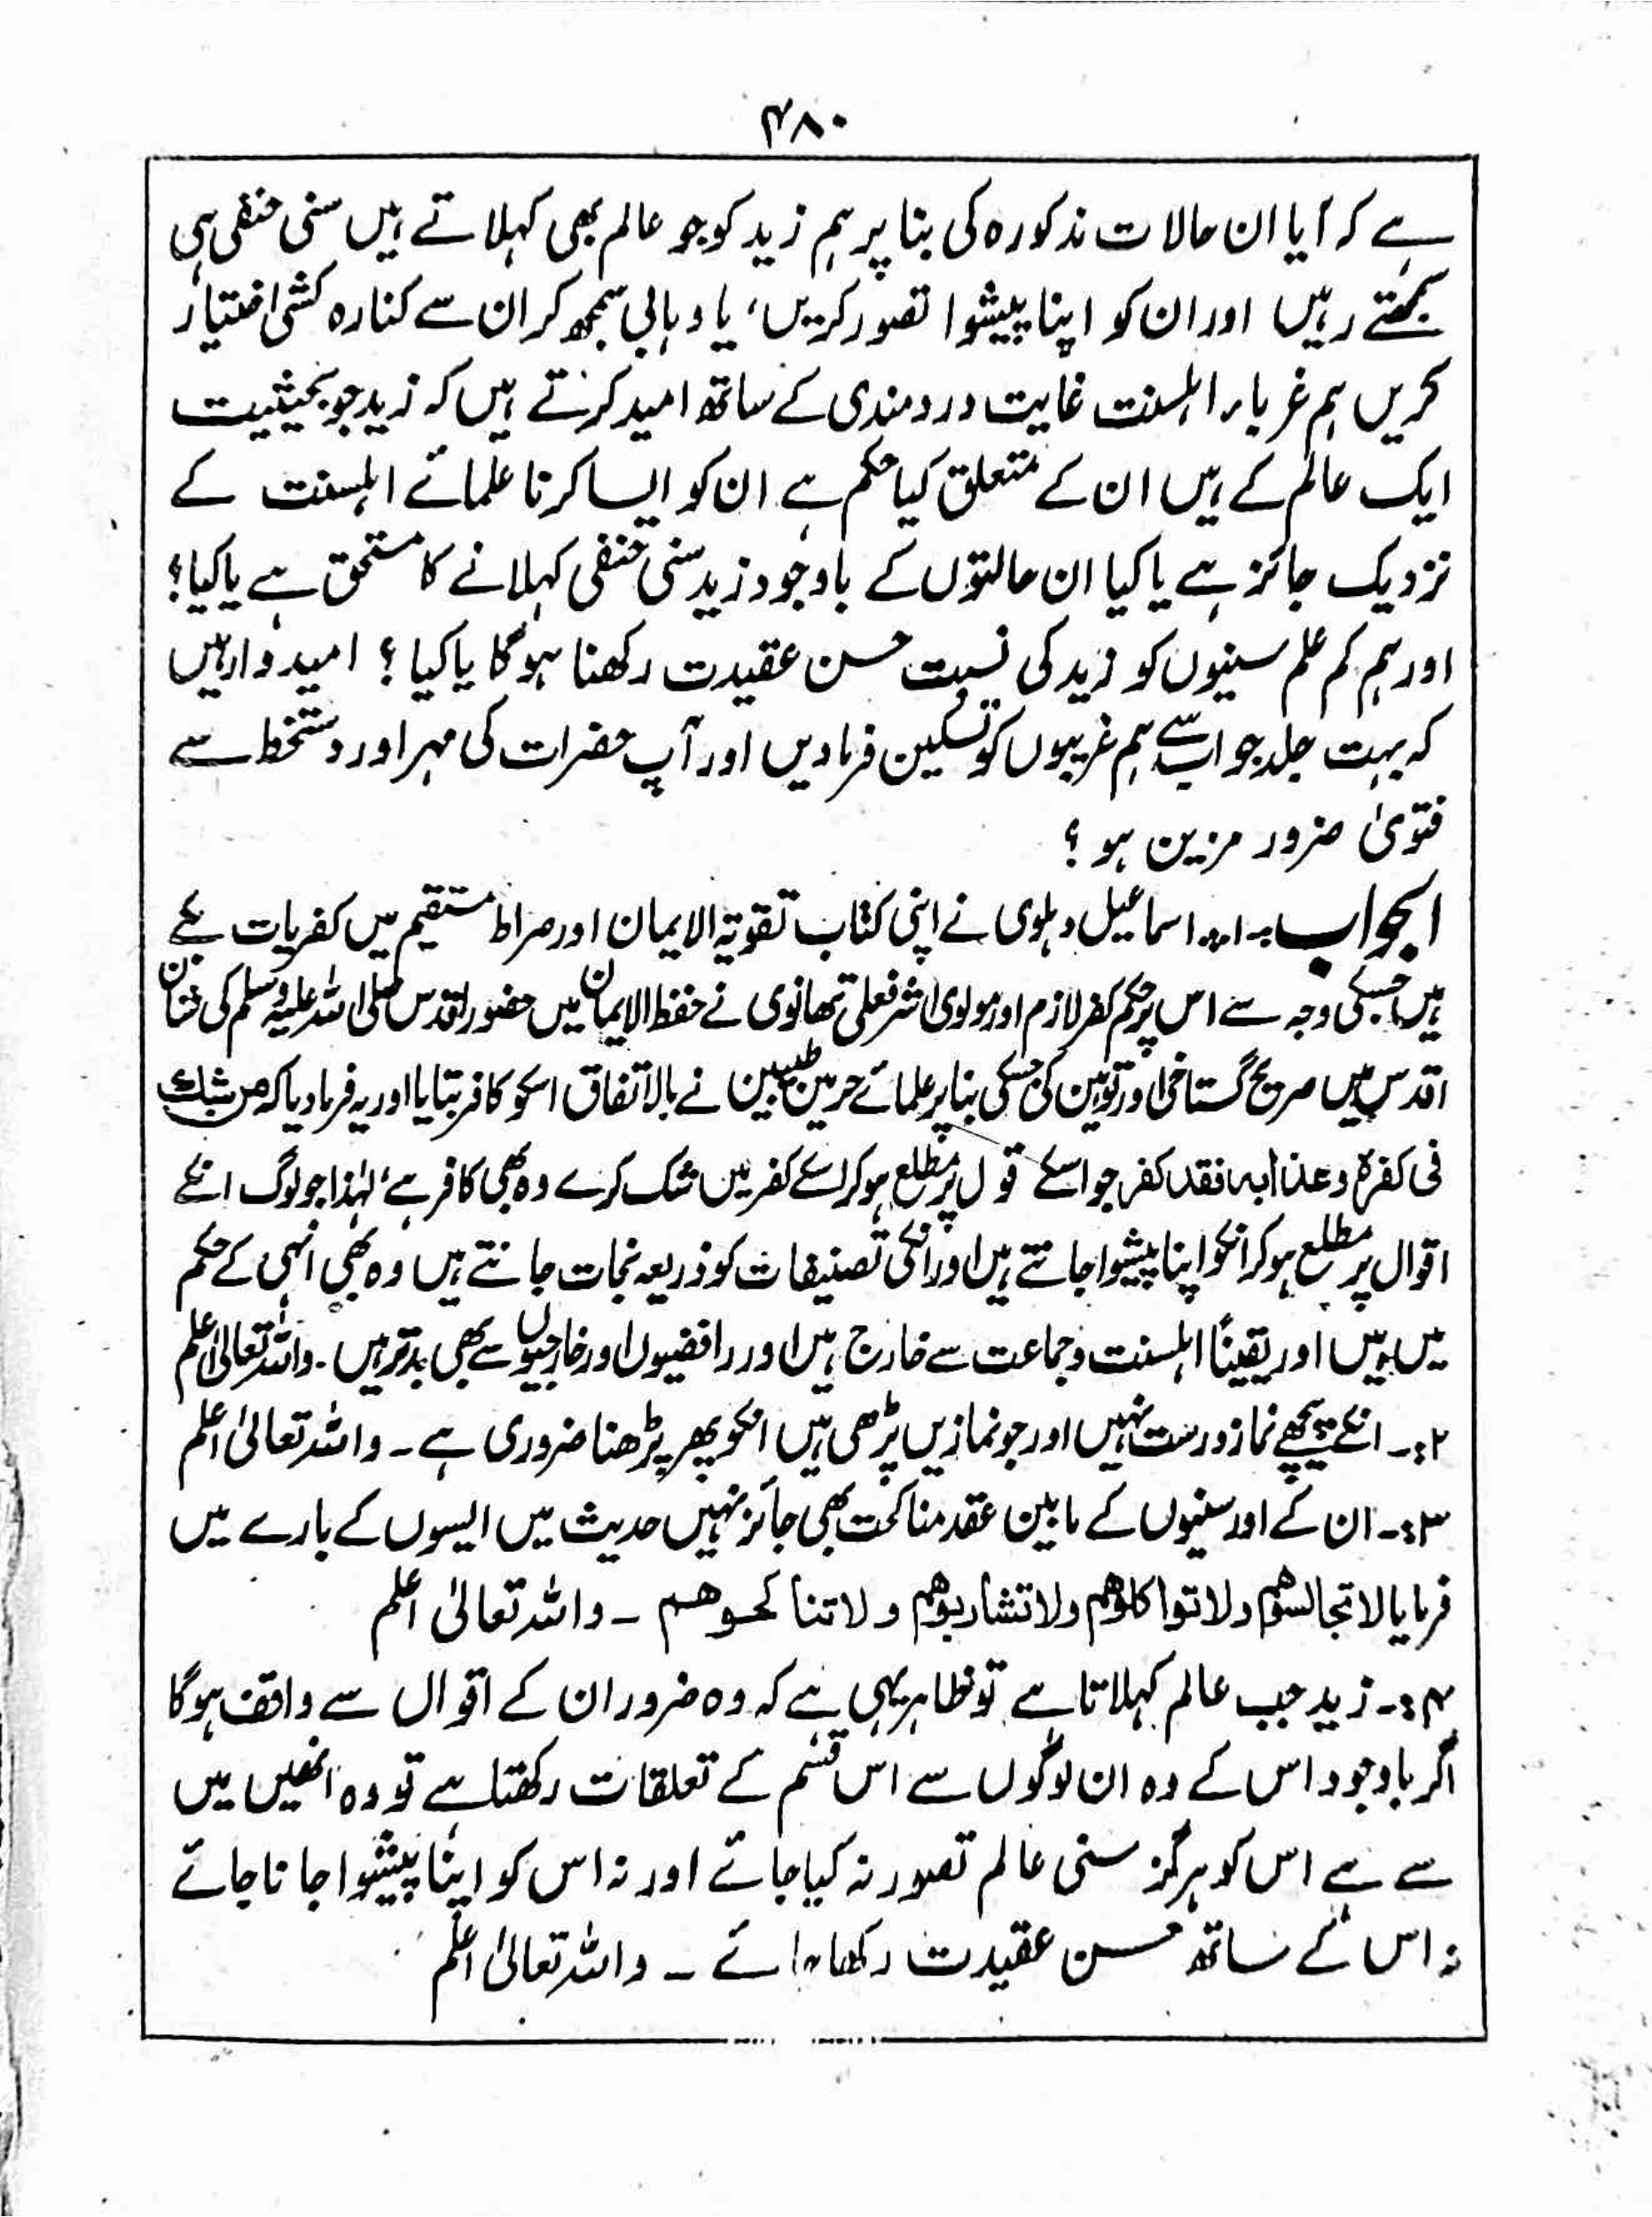 ۴۸۰
ہے کہ آیا ان حالات مذکورہ کی بنا پر ہم زید کو جو عالم بھی کہلاتے ہیں سنی حنفی ہی
سمجھتے رہیں اور ان کو اپنا پیشوا تصور کریں، یا وہابی سمجھ کر ان سے کنارہ کشی اختیار
کریں ہم غرباء اہلسنت غایت دردمندی کے ساتھ امید کرتے ہیں کہ زید جو بحیثیت
ایک عالم کے ہیں ان کے متعلق کیا حکم ہے ان کو ایسا کرنا علمائے اہلسنت کے
نزدیک جائز ہے یا کیا ان حالتوں کے باوجود زید سنی حنفی کہلانے کا مستحق ہے یا کیا؟
اور ہم کم علم سنیوں کو زید کی نسبت حسن عقیدت رکھنا ہوگا یا کیا؟ امیدوار ہیں
کہ بہت جلد جواب سے ہم غریبوں کو تسکین فرمادیں اور آپ حضرات کی مہر اور دستخط سے
فتویٰ ضرور مزین ہو؟
الجواب :۔ ۱:۔ اسماعیل دہلوی نے اپنی کتاب تقویۃ الایمان اور صراط مستقیم میں کفریات بکے
ہیں جسکی وجہ سے اس پر حکم کفر لازم اور مولوی اشرفعلی تھانوی نے حفظ الایمان میں حضور اقدس صلی اللہ علیہ وسلم کی شان
اقدس میں صریح گستاخی اور توہین کی جسکی بنا پر علمائے حرمین طیبین نے بالاتفاق اسکو کافر بتایا اور یہ فرمادیا کہ من شک
فی کفرہ وعذابہ فقد کفر جو اسکے قول پر مطلع ہوکر اسکے کفر میں شک کرے وہ بھی کافر ہے، لہٰذا جو لوگ انکے
اقوال پر مطلع ہوکر انکو اپنا پیشوا جانتے ہیں اور انکی تصنیفات کو ذریعہ نجات جانتے ہیں وہ بھی انہی کے حکم
میں ہیں اور یقیناً اہلسنت وجماعت سے خارج ہیں اور رافضیوں اور خارجیوں سے بھی بدتر ہیں۔ واللہ تعالیٰ اعلم
۲:۔ انکے پیچھے نماز درست نہیں اور جو نمازیں پڑھی ہیں انکو پھر پڑھنا ضروری ہے۔ واللہ تعالیٰ اعلم
۳:۔ ان کے اور سنیوں کے مابین عقد مناکحت بھی جائز نہیں حدیث میں ایسوں کے بارے میں
فرمایا لا تجالسوھم ولا تواکلوھم ولا تشاربوھم ولا تناکحوھم ۔ واللہ تعالیٰ اعلم
۴:۔ زید جب عالم کہلاتا ہے تو ظاہر یہی ہے کہ وہ ضرور ان کے اقوال سے واقف ہوگا
اگر باوجود اس کے وہ ان لوگوں سے اس قسم کے تعلقات رکھتا ہے تو وہ انھیں میں
سے ہے اس کو ہرگز سنی عالم تصور نہ کیا جائے اور نہ اس کو اپنا پیشوا جانا جائے
نہ اس کے ساتھ حسن عقیدت رکھا جائے ۔ واللہ تعالیٰ اعلم